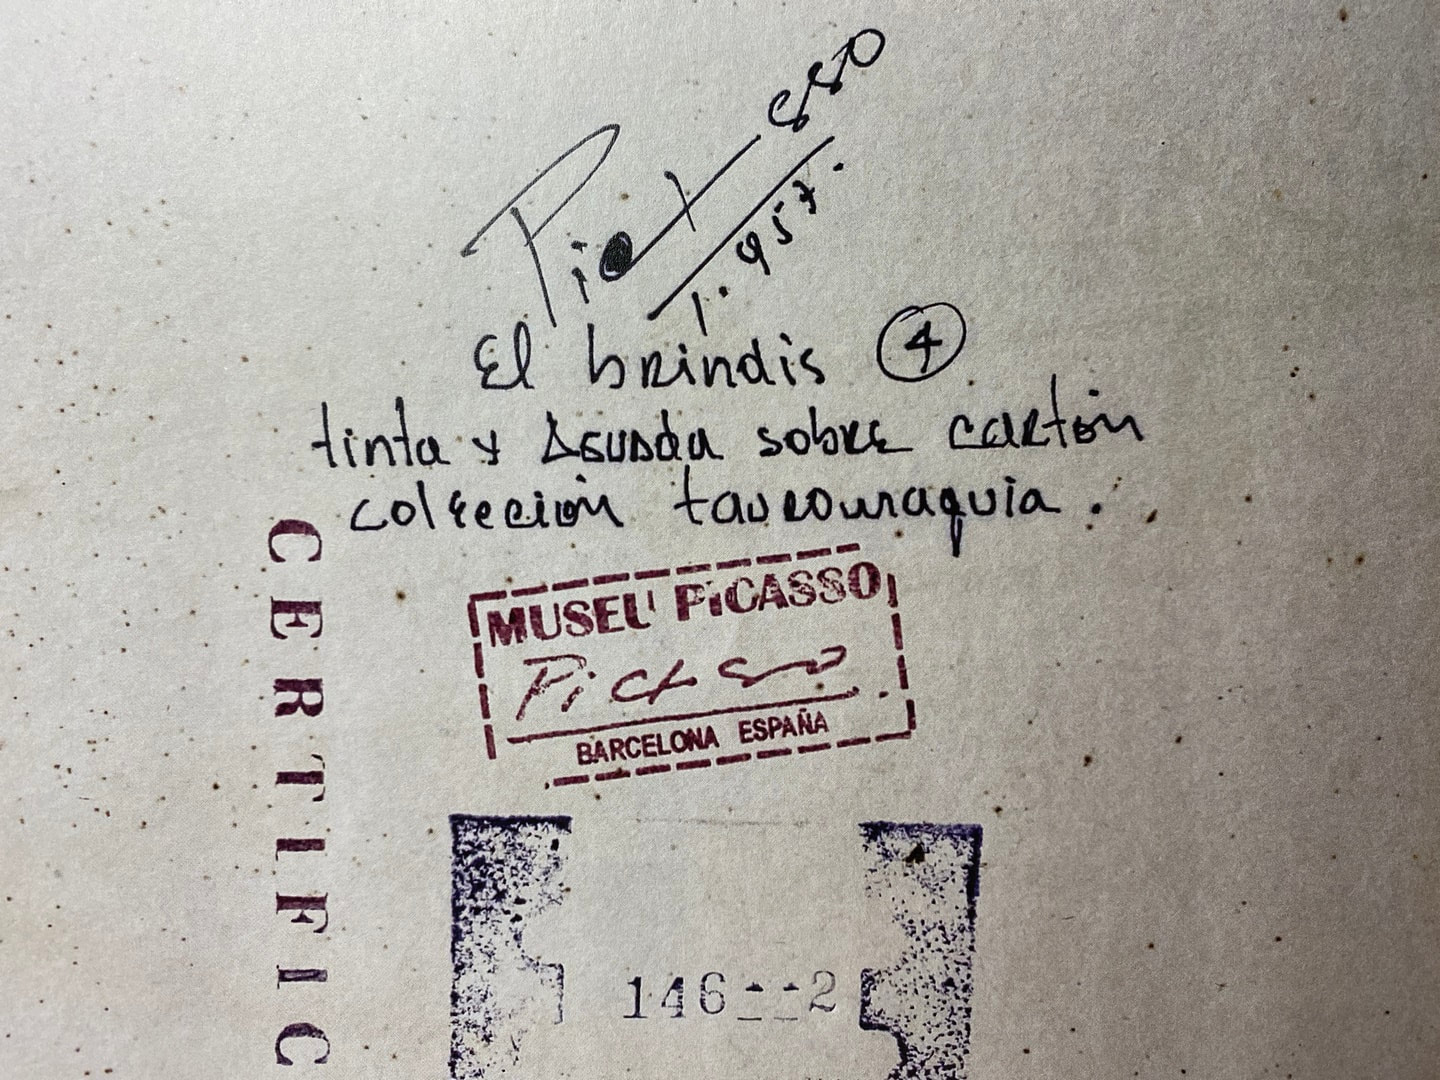 Picasso
1.957.
El brindis 4
tinta y Aguada sobre cartón
colección tauromaquia.
MUSEU PiCASSO
Picasso
BARCELONA ESPAÑA
CERTIFIC
146--2